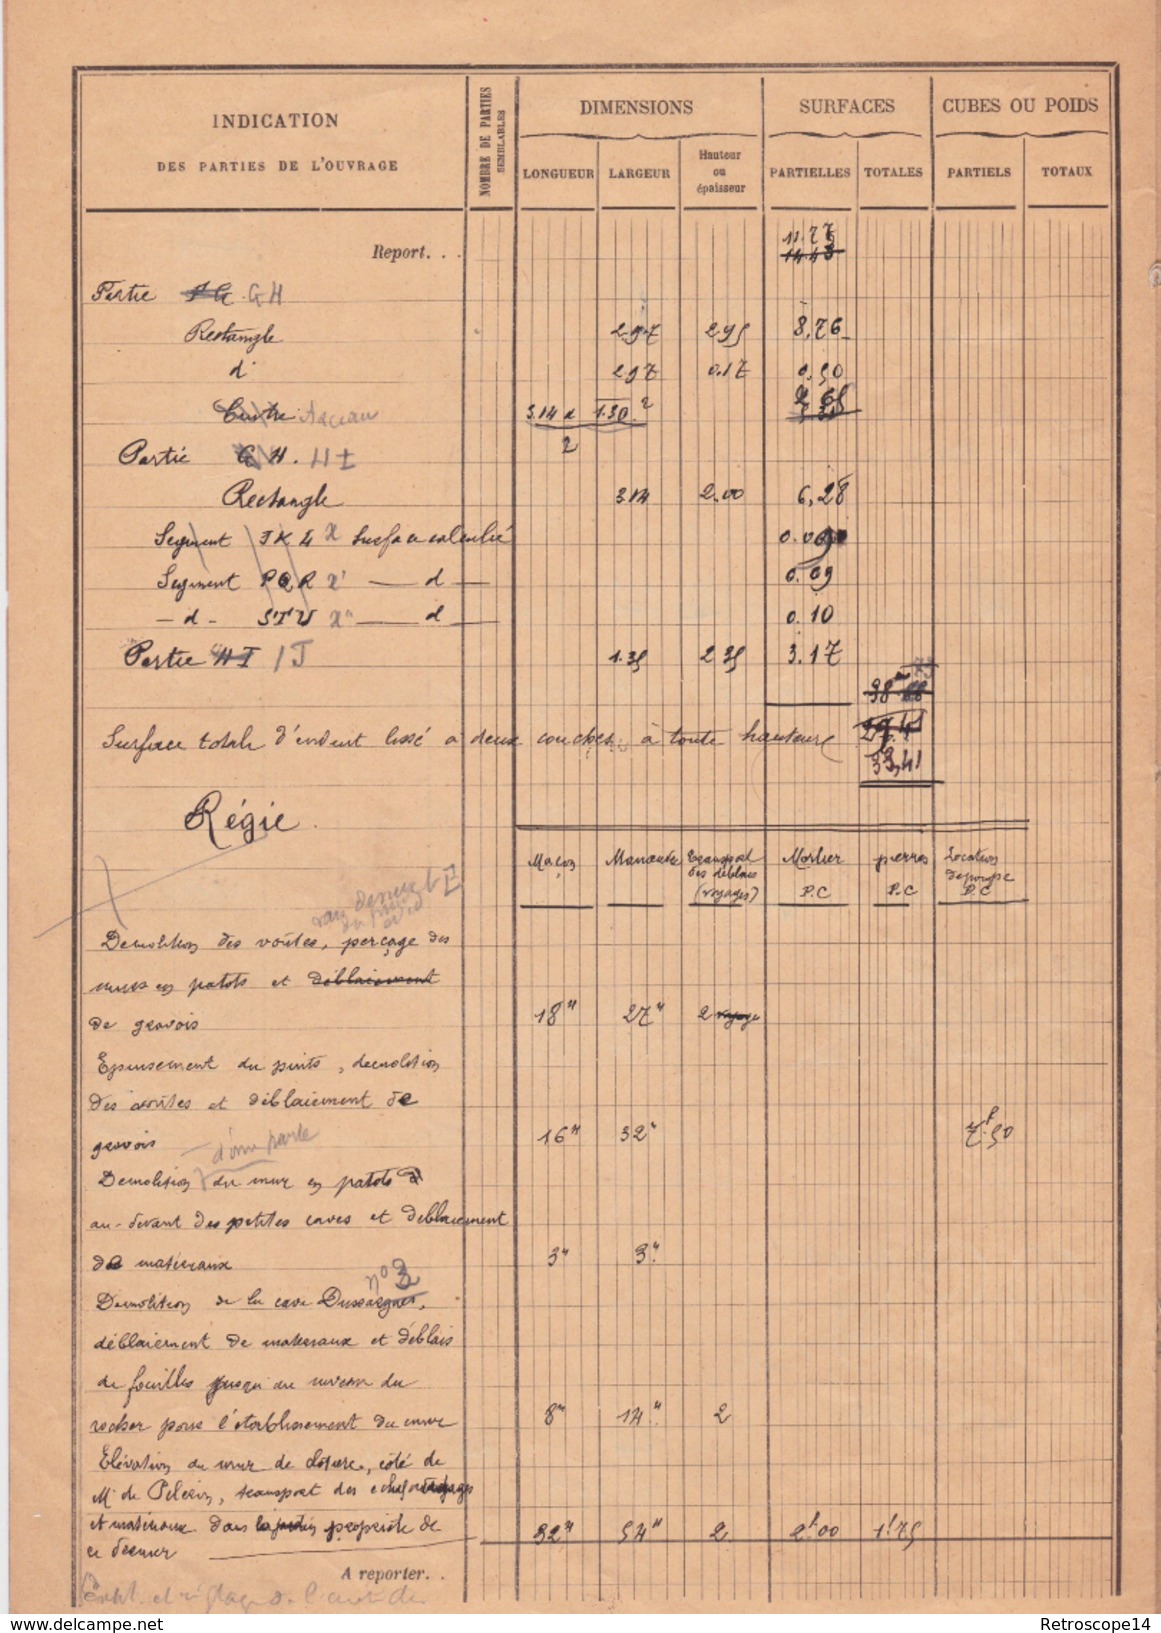 INDICATION
DES PARTIES DE L'OUVRAGE
NOMBRE DE PARTIES SEMBLABLES
DIMENSIONS
LONGUEUR LARGEUR Hauteur ou épaisseur
SURFACES
PARTIELLES TOTALES
CUBES OU POIDS
PARTIELS TOTAUX
Report. . . 11.77
14.43
Partie GH
Rectangle 2.97 2.95 8,76
d° 2.97 0.17 0,50
3.14 x 1.30² 2 65
2
Partie G H. H I
Rectangle 3.14 2.00 6,28
Segment J K L X Surface calculée 0.09
Segment P Q R X' — d — 0.09
— d — S T U X" — d — 0.10
Partie H I I J 1.35 2 35 3.17
38 88
29.41
Surface totale d'enduit lissé à deux couches à toute hauteur 33,41
Régie.
Maçon Manœuvre Transport des déblais (voyages) Mortier P.C pierres P.C Location de pompe P.C
Demolition des voûtes, perçage des
murs en patots et déblaiement
de gravois 18" 27" 2 voyage
Epuisement du puits, demolition
des voûtes et déblaiement de
gravois 16" 32" 7f.50
d'une partie
Demolition du mur en patots
au-devant des petites caves et deblaiement
de matériaux 3" 3"
n° 3
Demolition de la cave Dussaignes,
déblaiement de materiaux et déblais
de fouilles jusqu'au niveau du
rocher pour l'établissement du mur 8" 14" 2
Elévation du mur de clôture, côté de
M. de Pelerin, transport des echafaudages
et matériaux dans le jardin propriété de
ce dernier 32" 54" 2 2f00 1f75
A reporter. .
Retroscope14